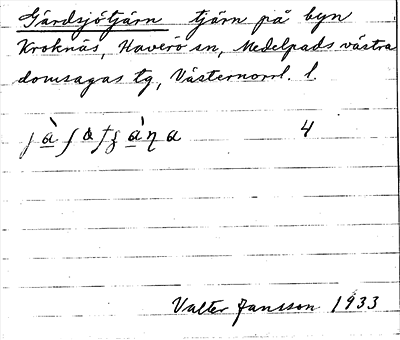 Gårdsjötjärn tjärn på byn
Kroknäs, Haverö sn, Medelpads västra
domsagas tg, Västernorrl. l.
4
Valter Jansson 1933